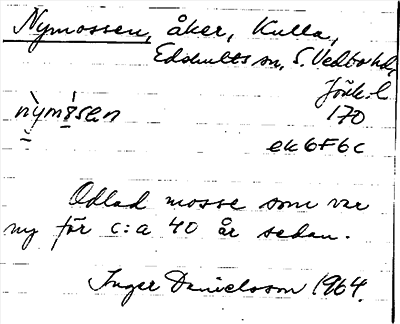 Nymossen, åker, Kulla,
Edshults sn, S. Vedbo hd,
Jönk. l
nỳmósen 170
ek 6F6c
Odlad mosse som var
ny för c:a 40 år sedan.
Inger Danielsson 1964.